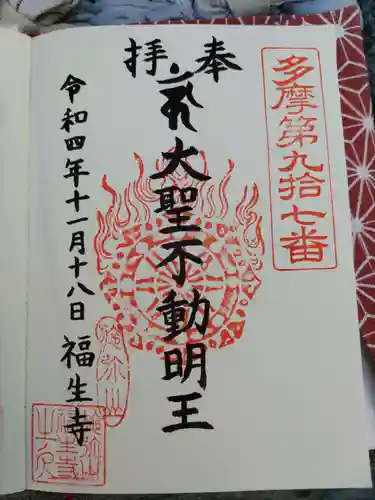 多摩第九拾七番
奉拝
大聖不動明王
令和四年十一月十八日
福生寺